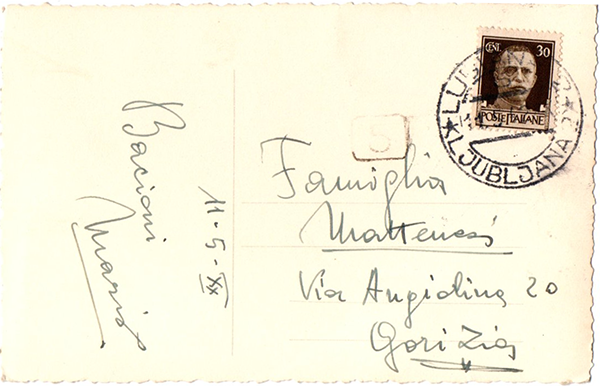 Bacioni
Mario
11-5-XX
CENT. 30
POSTE ITALIANE
★ LUBIANA ★
LJUBLJANA 2
S
Famiglia
Via Angiolina 20
Gorizia